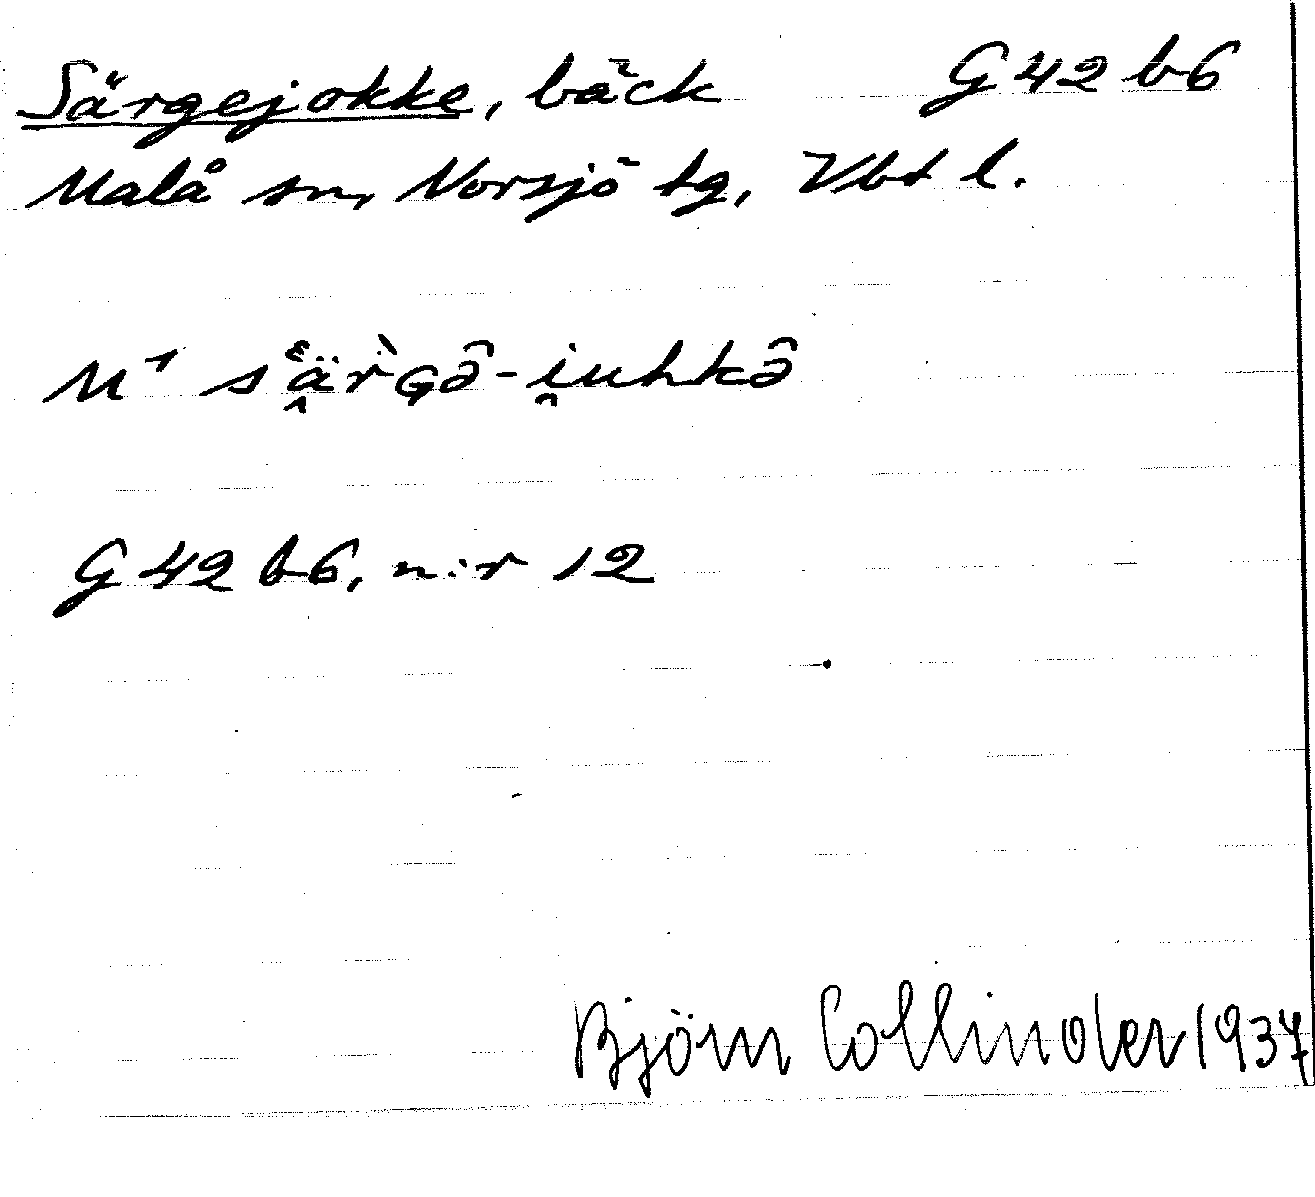 Särgejokke, bäck G 42 b 6
Malå sn, Norsjö tg, Vbt l.
M⁺ sᵋä̭r̀ɢə̑-i̯uhkə̑
G 42 b 6, n:r 12
Björn Collinder 1937